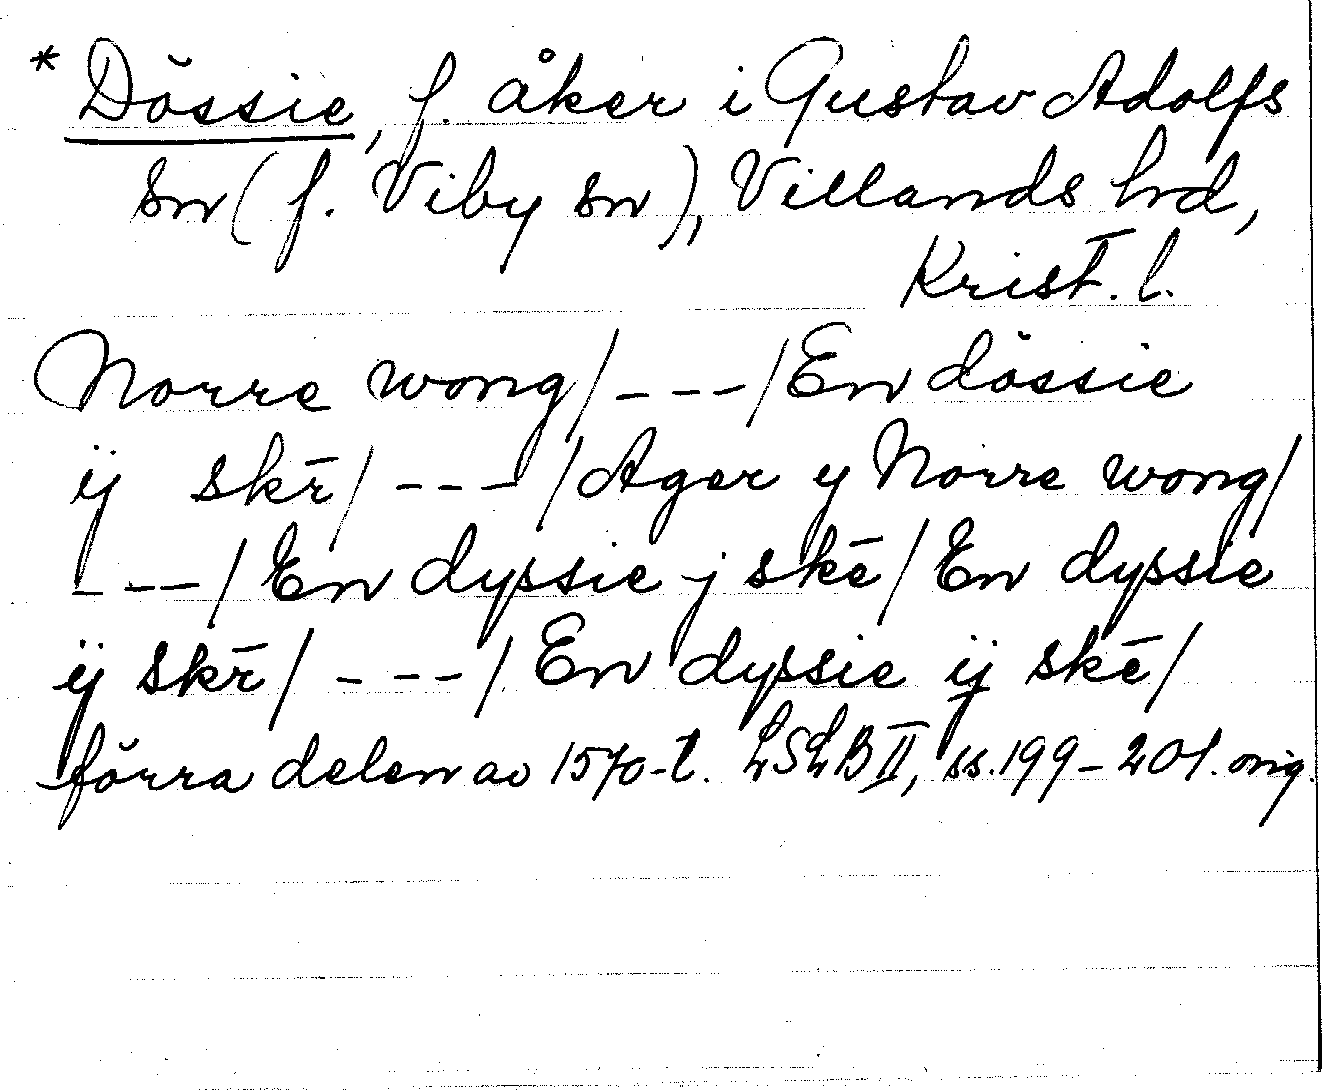 * Dössie, f. åker i Gustav Adolfs
sn (f. Viby sn), Villands hrd,
Krist. l.
Norre wong/ _ _ _ /En dössie
ij skr̄/ _ _ _ /Ager y Norre wong/
_ _ _ / En dyssie j skē/ En dyssie
ij skr̄/ _ _ _ / En dyssie ij skē/
förra delen av 1570-t. LSLB II, ss. 199-201. orig.